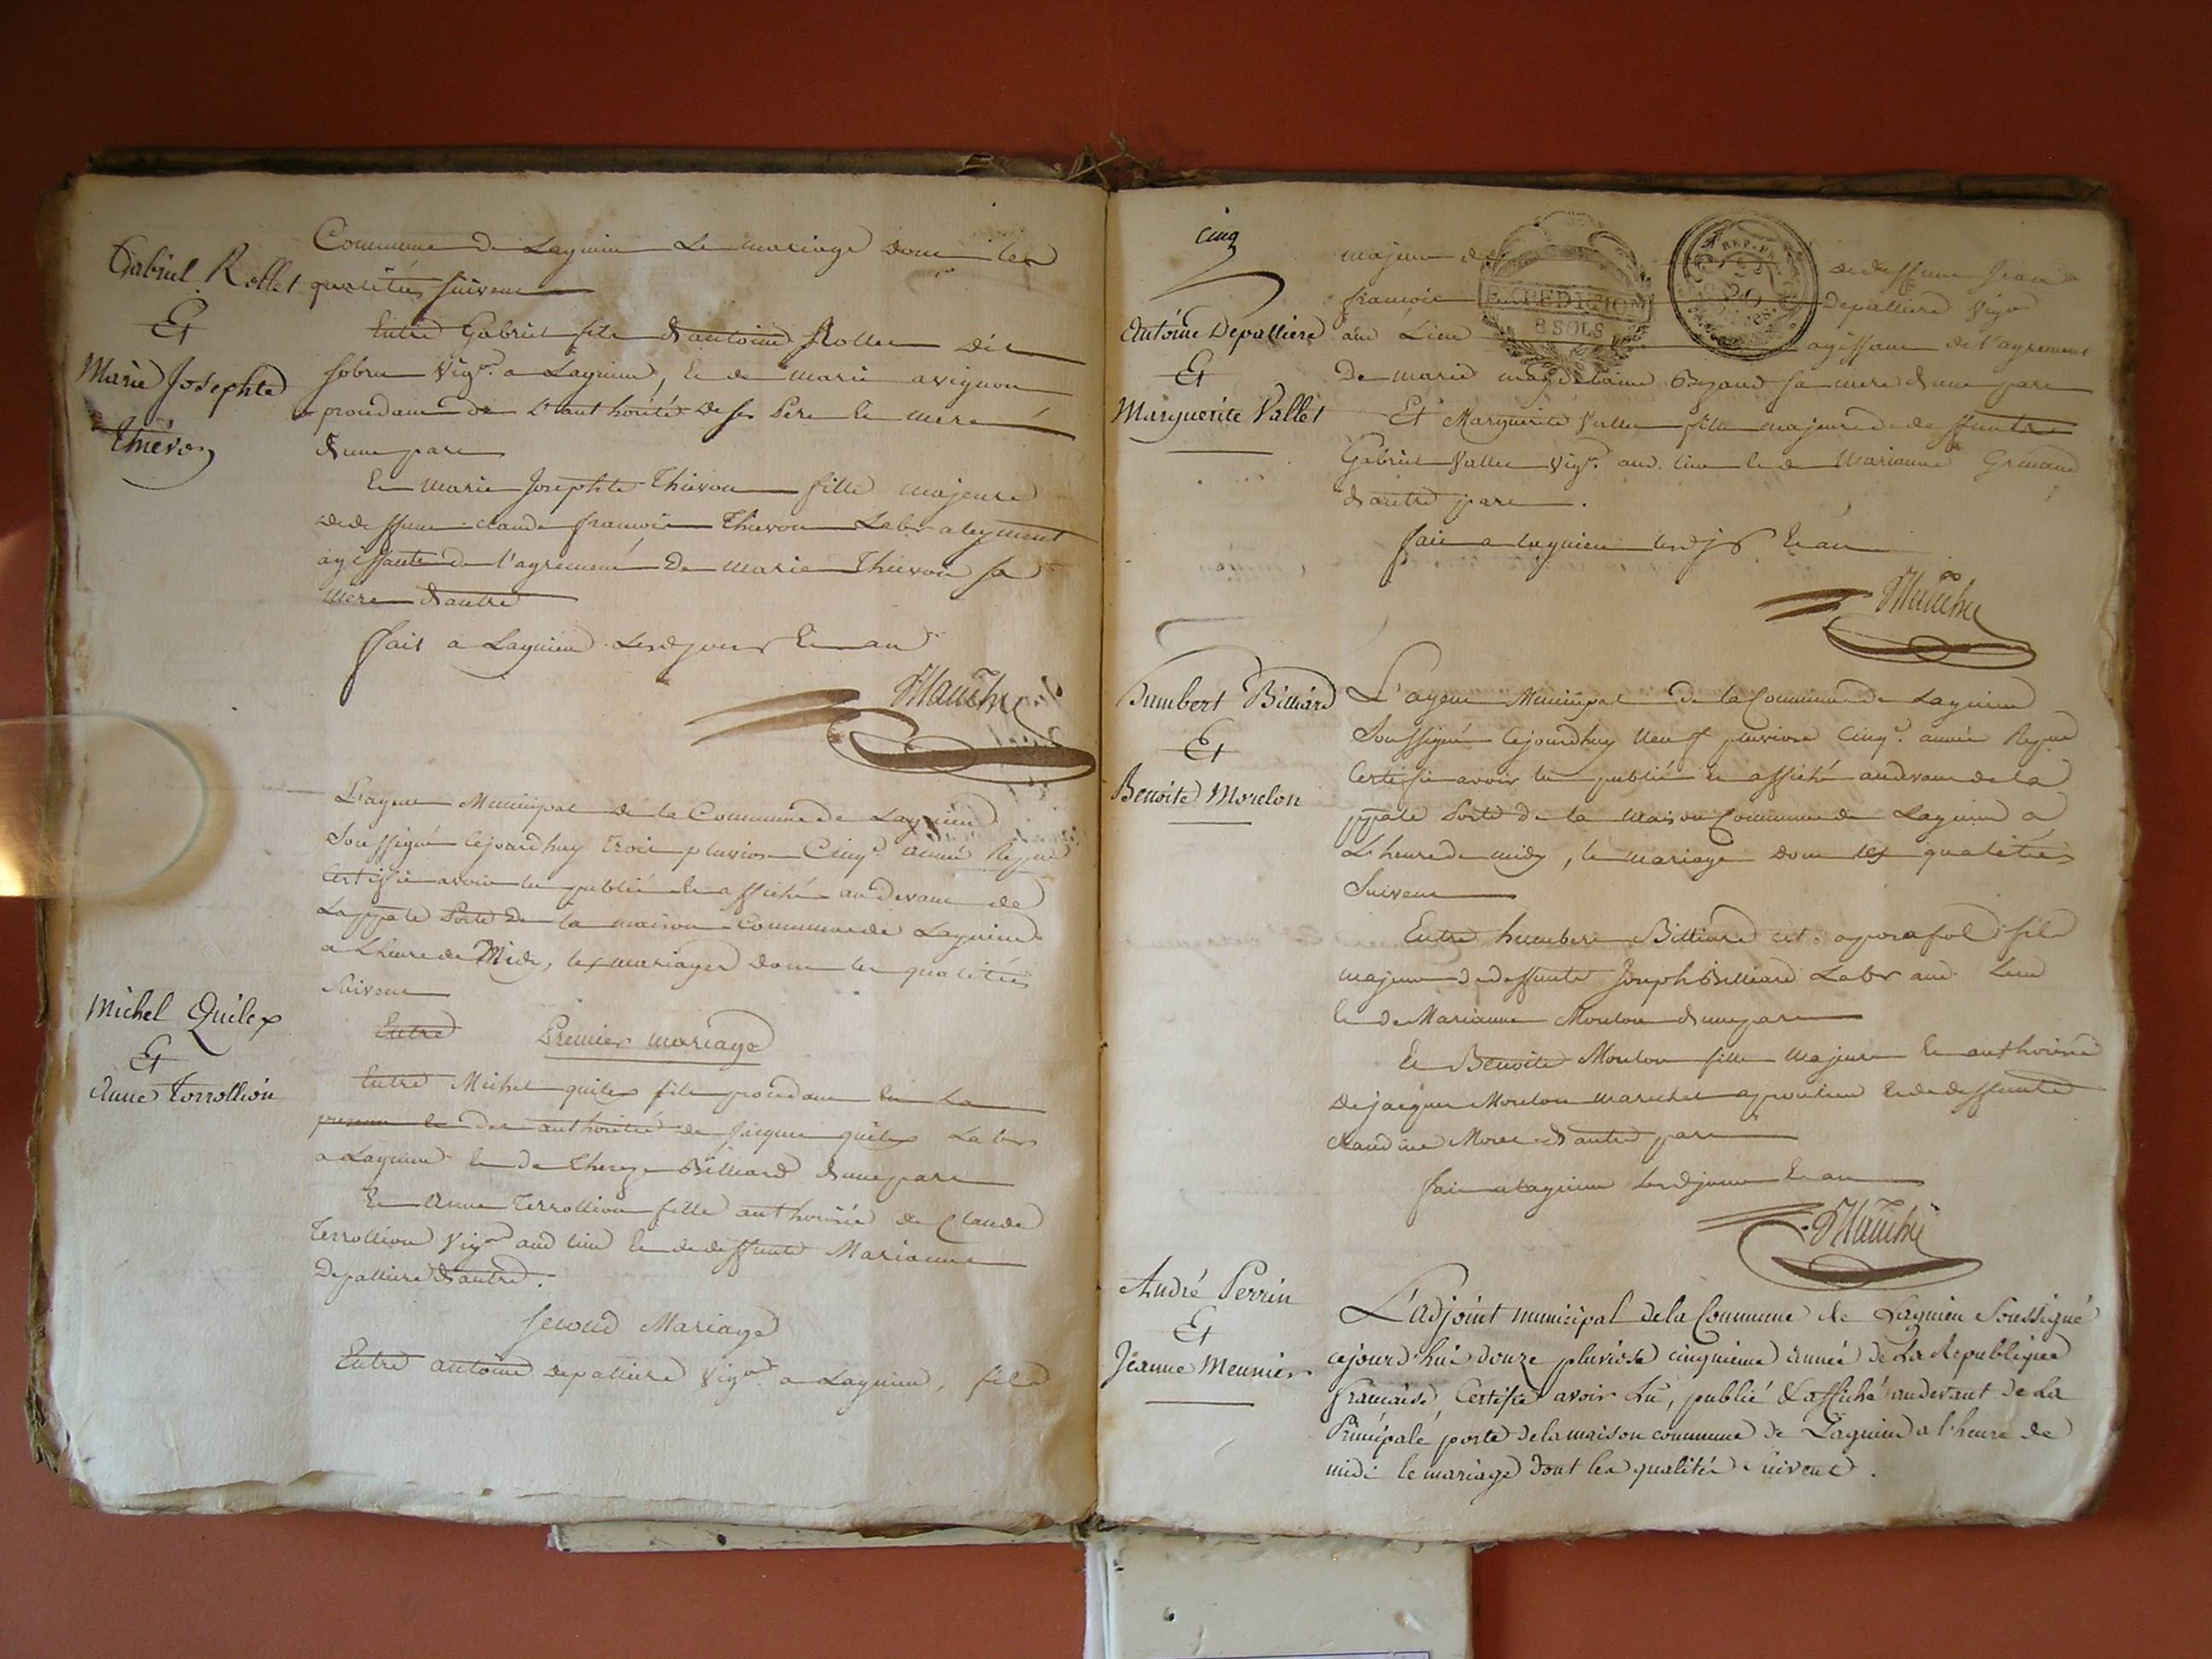 Commune de Lagnieu Le mariage dont les
Gabriel Rollet
qualités suivent
Et
Marie Josephte
Thévon
Entre Gabriel fils d'antoine Rollet dit
vigr. a Lagnieu, et de marie avignon
procedant de L'authorité de ses Pere et mere
d'une part
Et marie Josephte Thievon fille majeure
de deffunt claude françois Thievon Labr a leyment
agissante de l'agrement De marie Thievon sa
mere d'autre
fait a Lagnieu Lesd jour et an
L'agent Municipal de la Commune de Lagnieu
Soussigné Cejourdhuy trois pluviose Cinqe. année Repne
Certifie avoir lu publié et affiché audevant de
La ppale Porte de la maison Commune de Lagnieu
a L'heure de Midi, les mariages dont les qualités
suivent
Michel Quilex
Et
Anne Torrollion
Entre Premier mariage
Entre Michel quilex fils procedant en La
presence et des authorité de Jacque quilex Labr
a Lagnieu et de Thereze Billiard d'une part
Et Anne Terrollion fille authorisée de Claude
Terrollion Vigr aud lieu et de deffunte Marianne
Depalliere d'autre.
Second Mariage
Entre antoine depalliere Vigr. a Lagnieu, fils
cinq
majeur de deffunt Jean
françois Depalliere Vigr
aud Lieu agissant de l'agrement
De marie magdelaine Bezand sa mere d'une part
EXPEDITION
8 SOLS
REP. FRA.
Antoine Depalliere
Et
Marguerite Vallet
Et Marguerite Vallet fille majeure de deffunt
Gabriel Vallet Vigr. aud. lieu et de Marianne
d'autre part.
fait a lagnieu lesd jr et an
Humbert Billiard
Et
Benoite Morelon
L'agent Municipal de la Commune de Lagnieu
Soussigné Cejourdhuy Neuf pluviose Cinqe. année Repne
Certifie avoir lu publié et affiché audevant de la
ppale Porte de la maison Commune de Lagnieu a
L'heure de midy, le mariage dont les qualités
Suivent
Entre humbert Billiard cit. a posafol fils
majeur de deffunte Joseph Billiard Labr aud. Lieu
et de Marianne Moulon d'une part
Et Benoite Morelon fille majeure et authorisée
De jacque Morelon marechal a proulieu et de deffunte
claudine Morel d'autre part
fait a lagnieu lesd jour et an
André Perrin
Et
Jeanne Meunier
L'adjoint municipal de la Commune de Lagnieu Soussigné
cejourd'hui douze pluviose cinquieme année de La Republique
française, Certifie avoir Lu, publié & affiché audevant de La
Principale porte de la maison commune de Lagnieu a l'heure de
midi le mariage dont les qualités suivent.